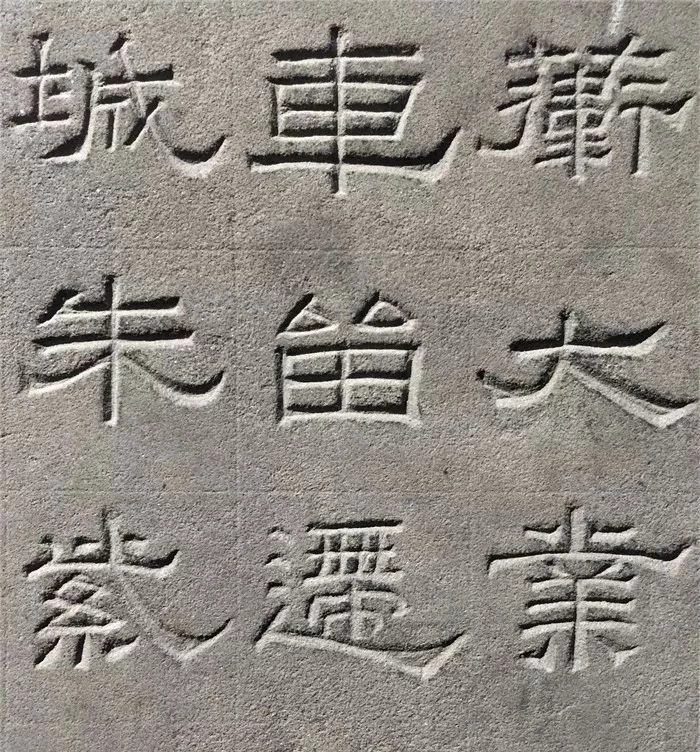 衛大業
車留遷
城朱紫